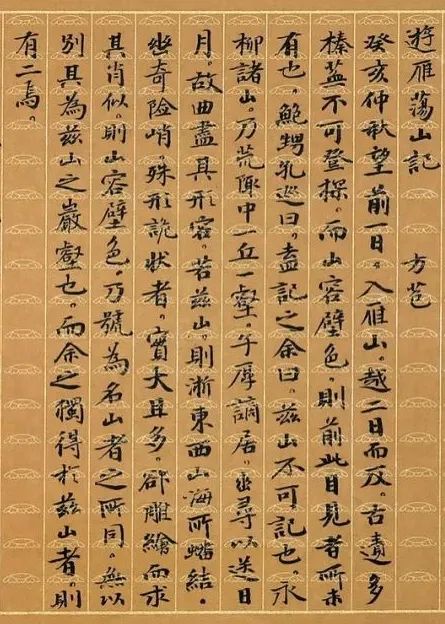 遊雁蕩山記　方苞
癸亥仲秋望前一日。入雁山。越二日而反。古蹟多
榛蕪不可登探。而山容壁色。則前此目見者所未
有也。鮑甥孔巡曰。盍記之余曰。茲山不可記也。永
柳諸山。乃荒陬中一丘一壑。子厚謫居。幽尋以送日
月。故曲盡其形容。若茲山。則浙東西山海所蟠結。
幽奇險峭。殊形詭狀者。實大且多。欲雕繪而求
其肖似。則山容壁色。乃號為名山者之所同。無以
別其為茲山之巖壑也。而余之獨得於茲山者。則
有二焉。